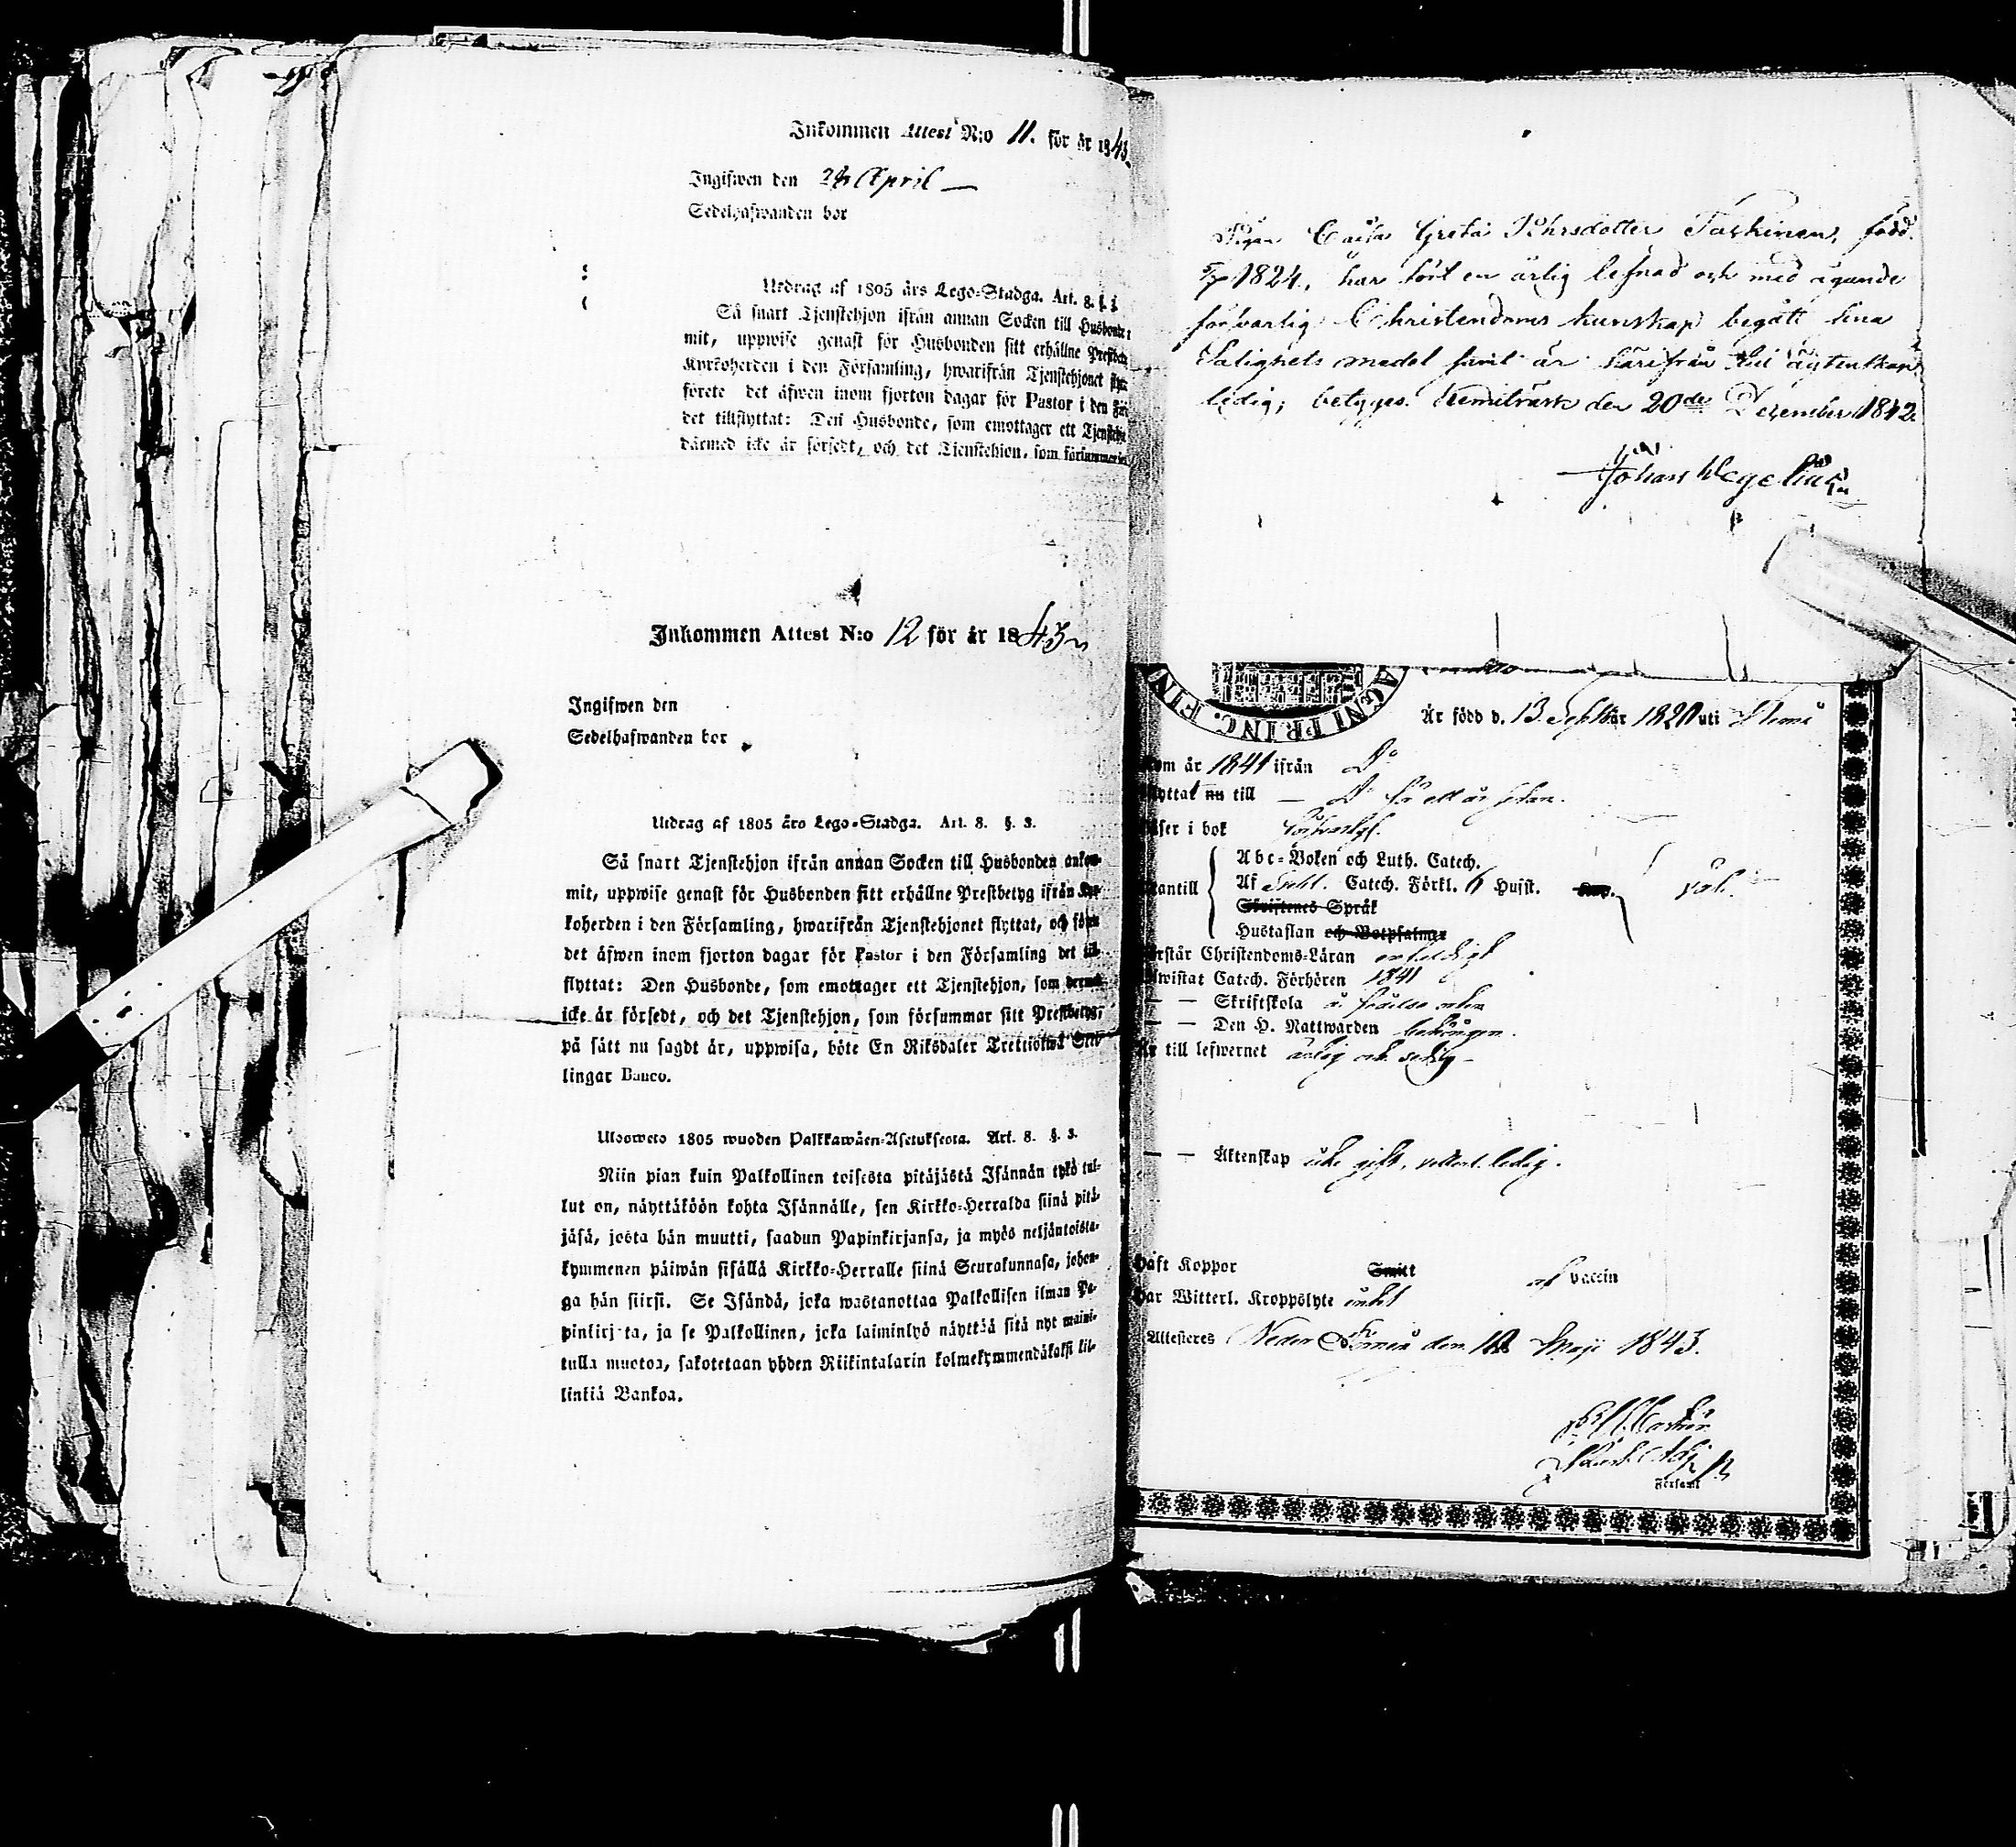 Inkommen Attest N:o 11. för år 1843
Ingifwen den April
Sedelhafwanden bor
Utdrag af 1805 års Lego-Stadga. Art. 8. §. 3.
Så snart Tjenstehjon ifrån annan Socken till Husbonden
mit, uppwise genast för Husbonden sitt erhållne Prestbetyg
Kyrkoherden i den Församling, hwarifrån Tjenstehjonet
förete det äfwen inom fjorton dagar för Pastor i den För
det tillflyttat: Den Husbonde, som emottager ett Tjenstehj
därmed icke är försedt, och det Tjenstehjon, som försummar
Inkommen Attest N:o 12 för år 1843
Ingifwen den
Sedelhafwanden bor
Utdrag af 1805 års Lego-Stadga. Art. 8. §. 3.
Så snart Tjenstehjon ifrån annan Socken till Husbonden ankom-
mit, uppwise genast för Husbonden sitt erhållne Prestbetyg ifrån Kyr-
koherden i den Församling, hwarifrån Tjenstehjonet flyttat, och förete
det äfwen inom fjorton dagar för Pastor i den Församling det till-
flyttat: Den Husbonde, som emottager ett Tjenstehjon, som dermed
icke är försedt, och det Tjenstehjon, som försummar sitt Prestbetyg,
på sätt nu sagdt är, uppwisa, böte En Riksdaler Trettiotwå Skil-
lingar Banco.
Ulosweto 1805 wuoden Palkkawäen-Asetuksesta. Art. 8. §. 3.
Niin pian kuin Palkollinen toisesta pitäjästä Isännän tykö tul-
lut on, näyttäköön kohta Isännälle, sen Kirkko-Herralda siinä pitä-
jäsä, josta hän muutti, saadun Papinkirjansa, ja myös neljäntoista-
kymmenen päiwän sisällä Kirkko-Herralle siinä Seurakunnasa, johon-
ga hän siirsi. Se Isändä, joka wastanottaa Palkollisen ilman Pa-
pinkirjata, ja se Palkollinen, joka laiminlyö näyttää sitä nyt maini-
tulla muotoa, sakotetaan yhden Riikintalarin kolmekymmendäkaksi kil-
linkiä Bankoa.
Pigan Caisa Greta Pehrsdotter Taskinen, född
1824, har fört en ärlig lefnad och med ägande
försvarlig Christendoms kunskap begått sina
Salighets medel samt är härifrån till ägtenskap
ledig; betygas. Kemiträsk den 20de December 1842.
Johan Wegelius
AGNI PRINC. FIN
Är född d. 13 Sept år 1820 uti
om år 1841 ifrån Do
yttat nu till Do för ett år sedan.
ser i bok försvarl.
Abc-Boken och Luth. Catech.
antill Af Catech. Förkl. Husft.
Skriftenes Språk
Hustaflan och Botpsalmer
rstår Christendoms-Läran
wistat Catech. Förhören 1841
— — Skriftskola
— — Den H. Nattwarden
Är till lefwernet ärlig och sedlig
— — Äktenskap icke gift, ledig.
Haft Koppor Smitt vaccin
Har Witterl. Kroppslyte intet
Attesteres Neder Torneå den Maji 1843.
Församl